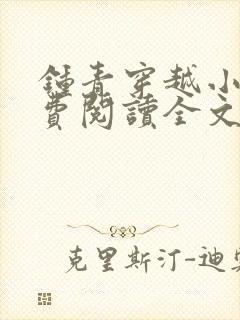 鍾青穿越小
費閱讀全文
克里斯汀-迪